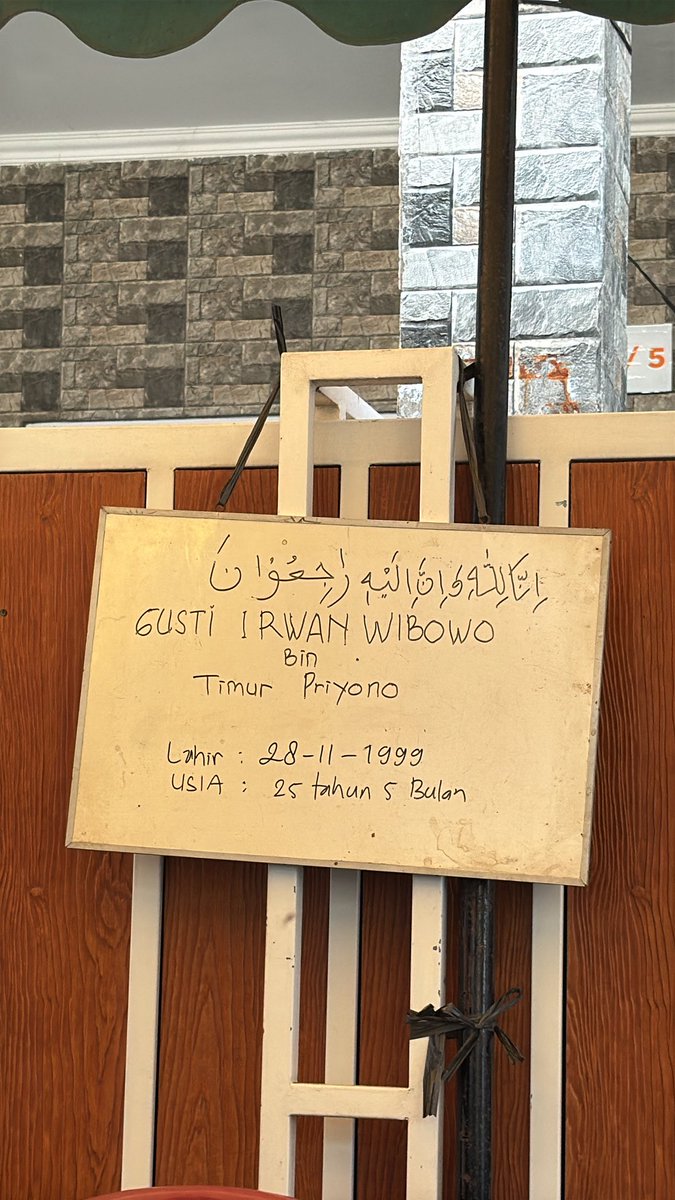 / 5
إِنَّا لِلَّٰهِ وَإِنَّا إِلَيْهِ رَاجِعُوْانَ
GUSTI IRWAN WIBOWO
Bin
Timur Priyono
Lahir : 28-11-1999
USIA : 25 tahun 5 Bulan